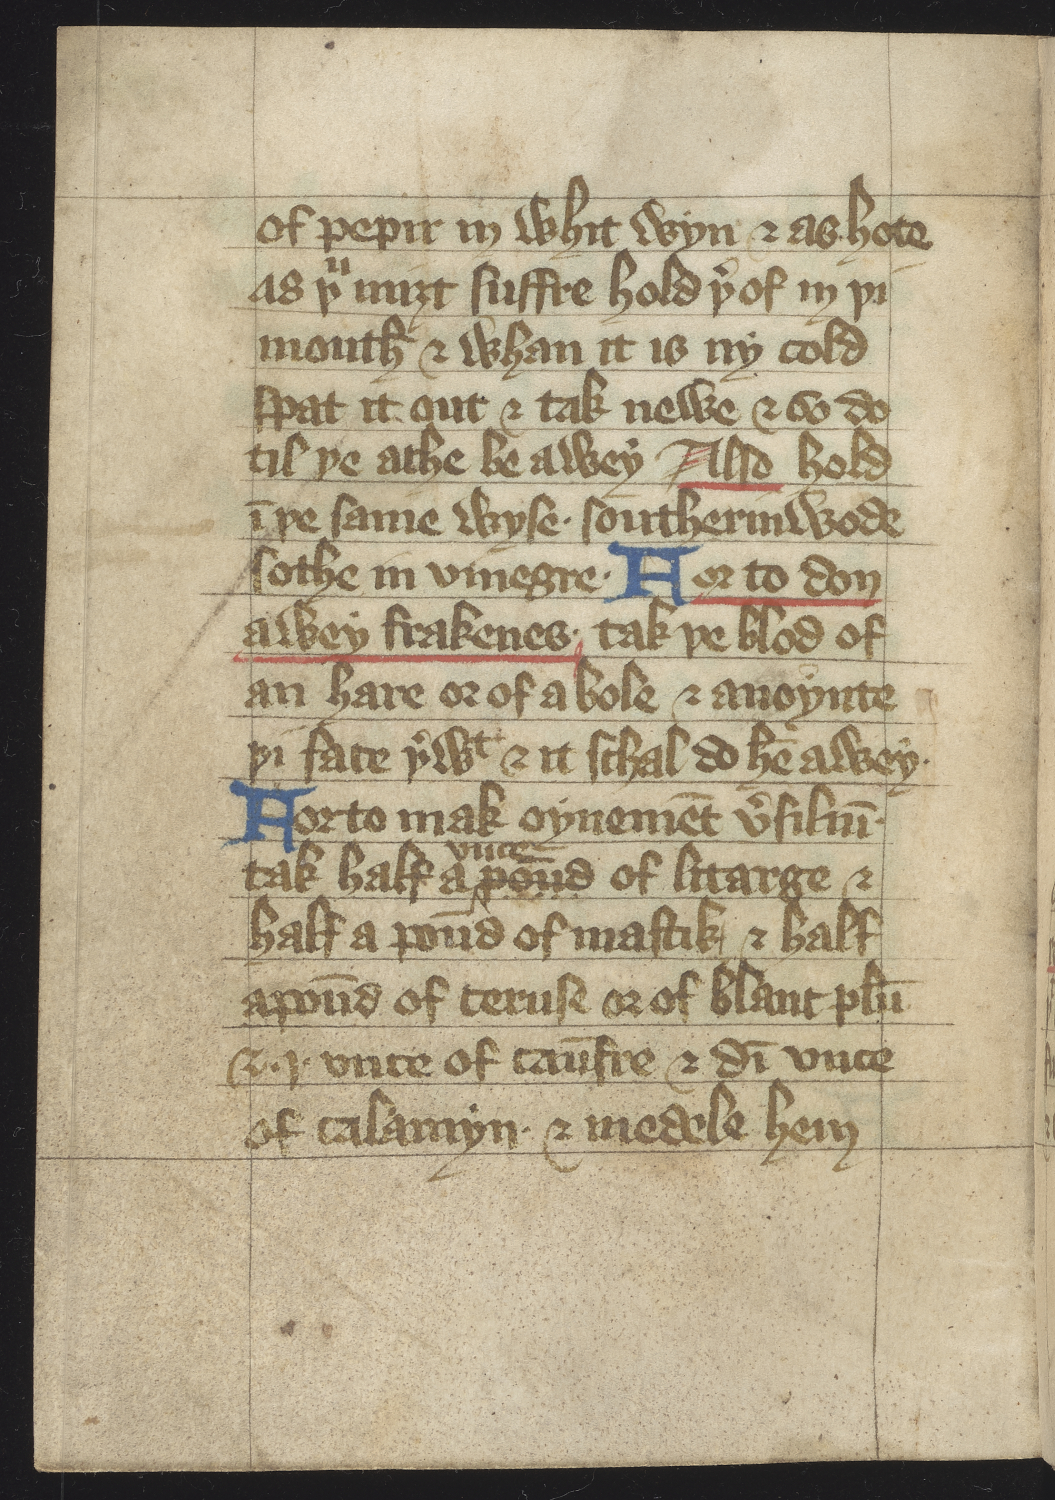 of pepir in whit wyn ⁊ as hote
as yͧ miȝt suffre hold y̓of in yi
mouth ⁊ whan it is ny cold
spat it out ⁊ tak newe ⁊ so do
til ye ache be awey Also hold
ī ye same wyse · southerinwode
sothe in vinegre · For to don
awey frakenes · tak ye blod of
an hare or of a bole ⁊ anoynte
yi face y̓wᵗ ⁊ it schal do hē awey ·
For to mak oynemēt
vnce
tak half a poūd of litarge ⁊
half a poūd of mastik ⁊ half
a poūd of ceruse or of blanc plū
vnce of caūfre ⁊ di vnce
of calamyn · ⁊ medele hem